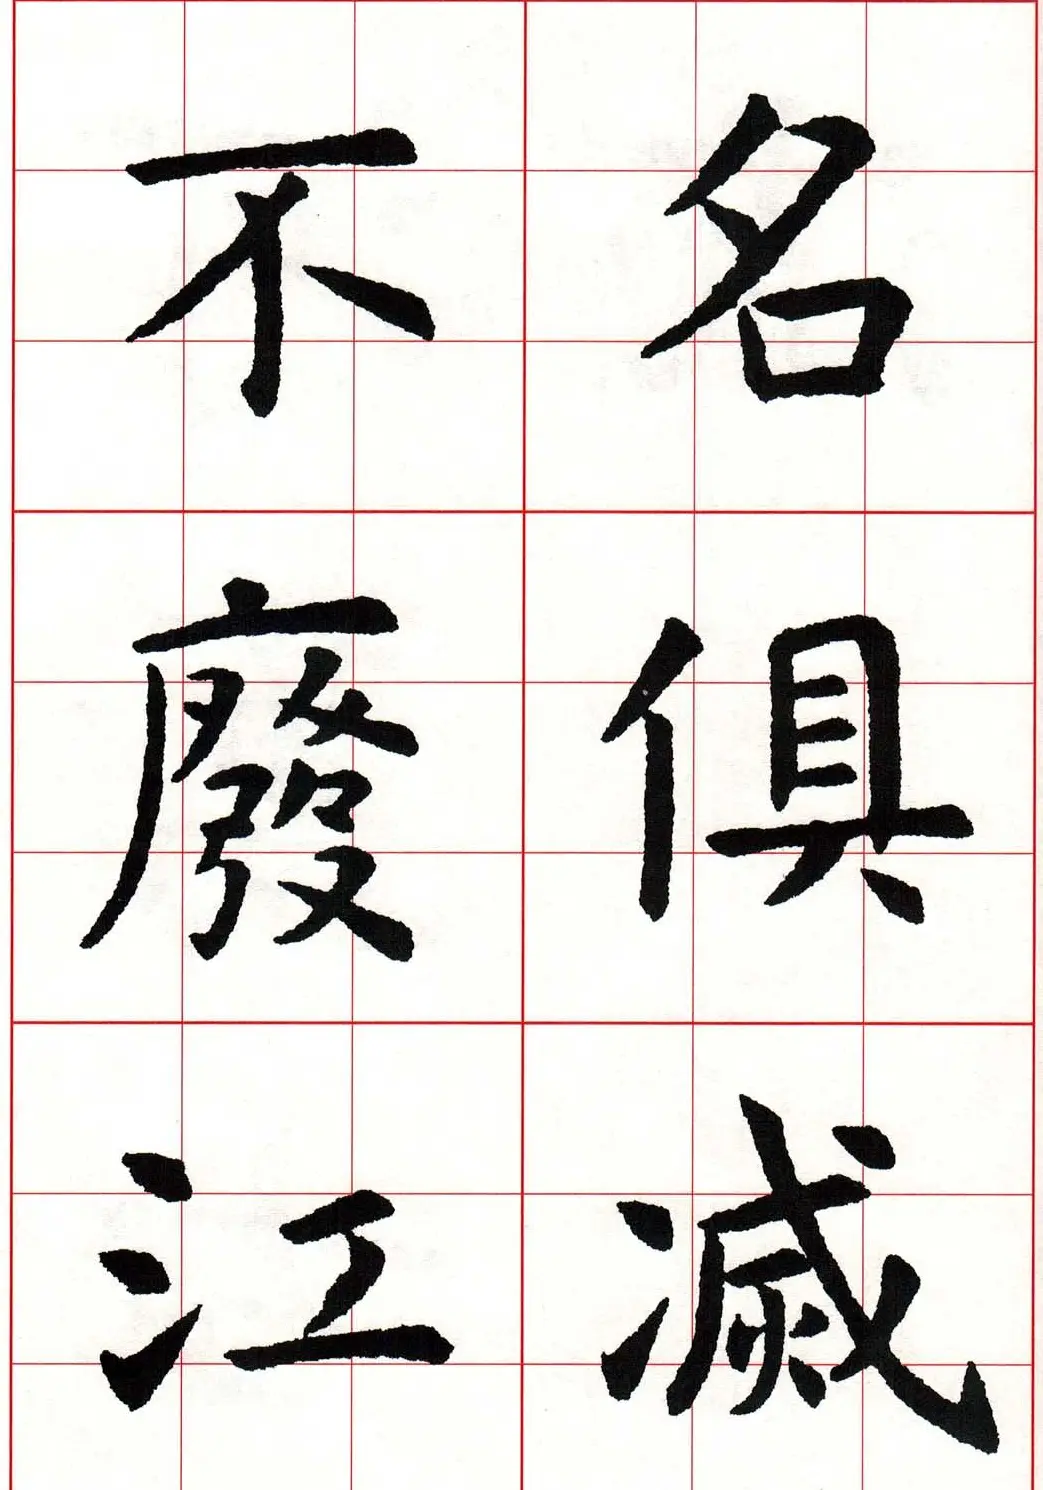 名俱滅
不廢江